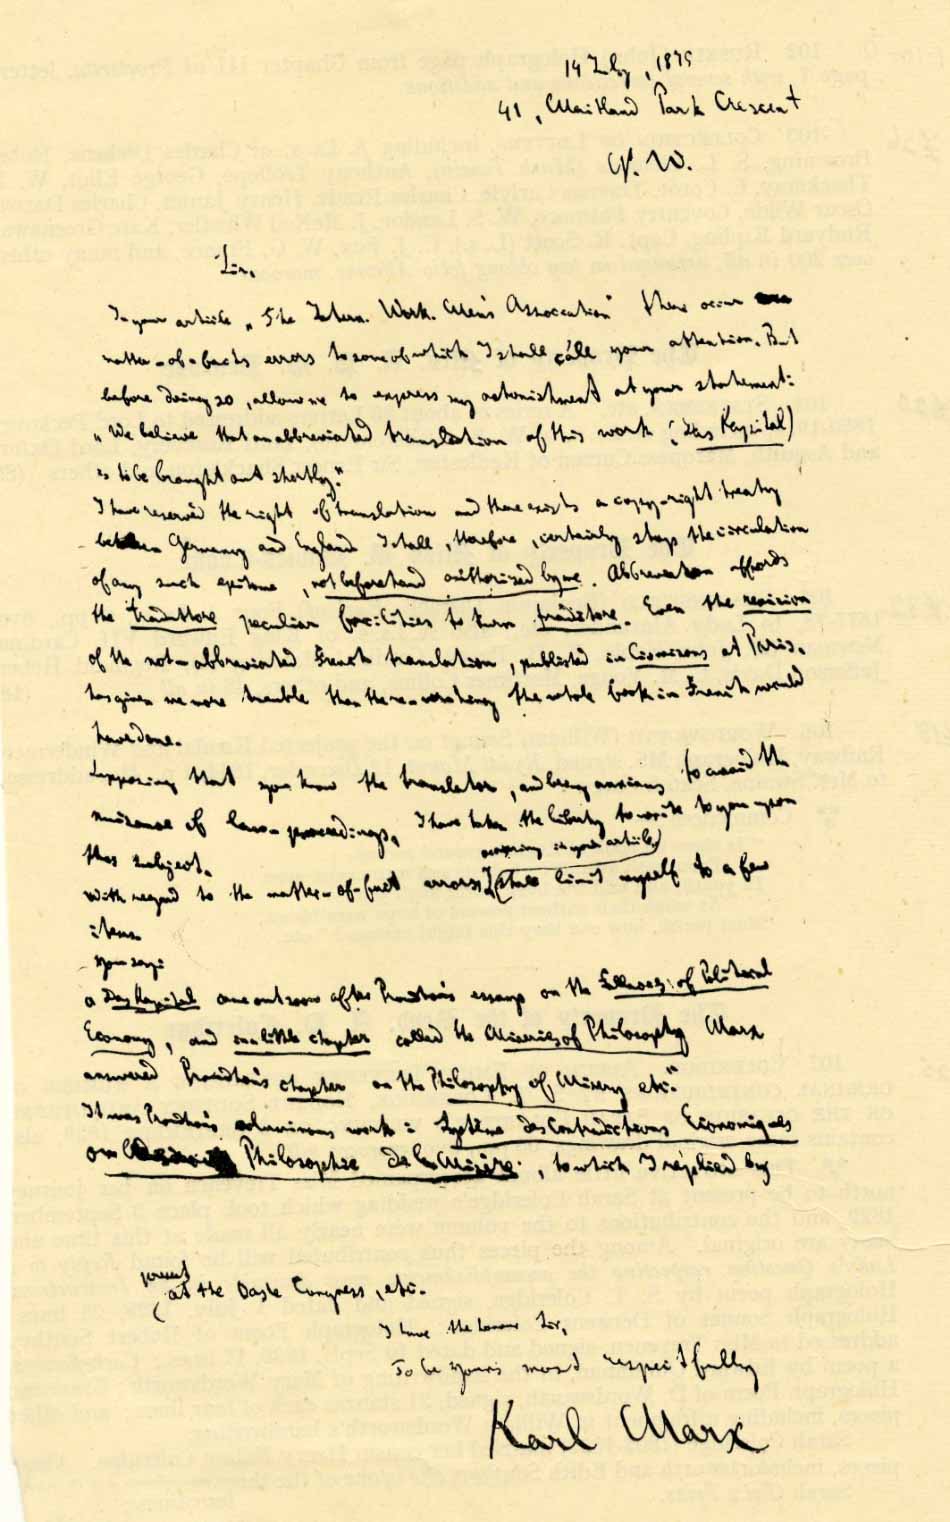 14 July, 1875
41, Maitland Park Crescent
N. W.
Sir,
In your article „The Intern. Work. Men's Association" there occur
matter-of-facts errors to some of which I shall call your attention. But
before doing so, allow me to express my astonishment at your statement:
„We believe that an abbreviated translation of this work (Das Kapital)
is to be brought out shortly."
I have reserved the right of translation and there exists a copy-right treaty
between Germany and England I shall, therefore, certainly stop the circulation
of any such epitome, not beforehand authorized by me. Abbreviation affords
the traduttore peculiar facilities to turn traditore. Even the revision
of the not-abbreviated French translation, published in Livraisons at Paris,
has given me more trouble than the re-working the whole book in French would
have done.
Supposing that you know the translator, and being anxious to avoid the
nuisance of law-proceedings, I have taken the liberty to write to you upon
this subject.
With regard to the matter-of-fact errors occurring in your article, I shall limit myself to a few
items.
You say:
„Das Kapital came out soon after Proudhon's essays on the of Political
Economy, and in a little chapter called the Miseries of Philosophy Marx
answered Proudhon's chapter on the Philosophy of Misery etc."
It was Proudhon's voluminous work: Système des Contradictions Economiques
ou Philosophie de la Misère, to which I replied by
present
at the Basle Congress, etc.
I have the honour Sir,
To be yours most respectfully
Karl Marx